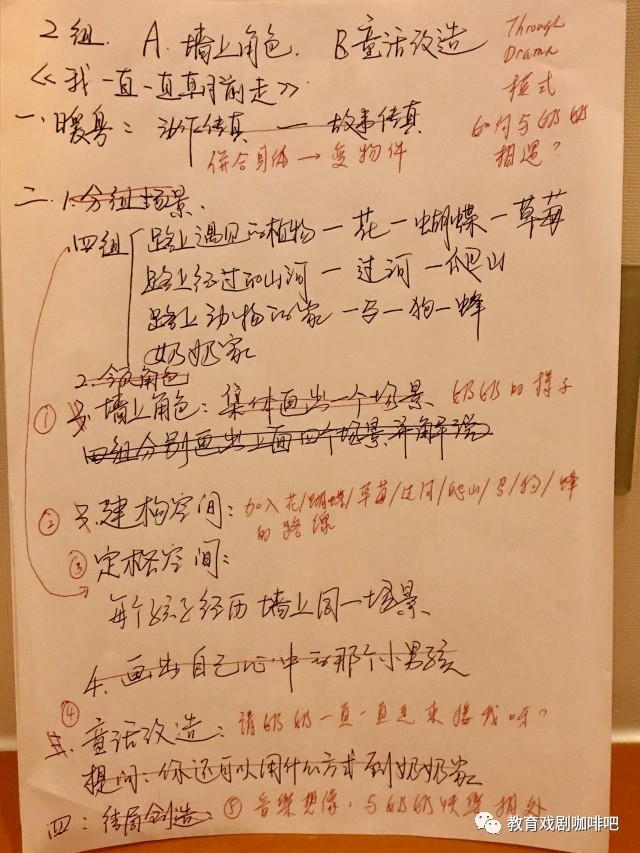 2组. A. 墙上角色. B 童话改造
Through
Drama
模式
如何与奶奶
相遇?
《我一直一直朝前走》
一、暖身: 动作传真 — 故事传真
併合身体 → 变物件
二. 1. 分组场景.
四组
路上遇见的植物 — 花 — 蝴蝶 — 草莓
路上经过的山河 — 过河 — 爬山
路上动物的家 — 马 — 狗 — 蜂
奶奶家
2. 分段角色
① 墙上角色: 集体画出一个场景. 奶奶的样子
四组分别画出上面四个场景并解说
② 建构空间: 加入花/蝴蝶/草莓/过河/爬山/马/狗/蜂
的路线
③ 定格空间:
每个孩子经历墙上同一场景
4. 画出自己心中的那个小男孩
④
三. 童话改造: 请奶奶一直一直走来接我呀?
提问: 你还可以用什么方式到奶奶家
四: 结局创造: ⑤ 音樂想像, 与奶奶快樂相处
教育戏剧咖啡吧